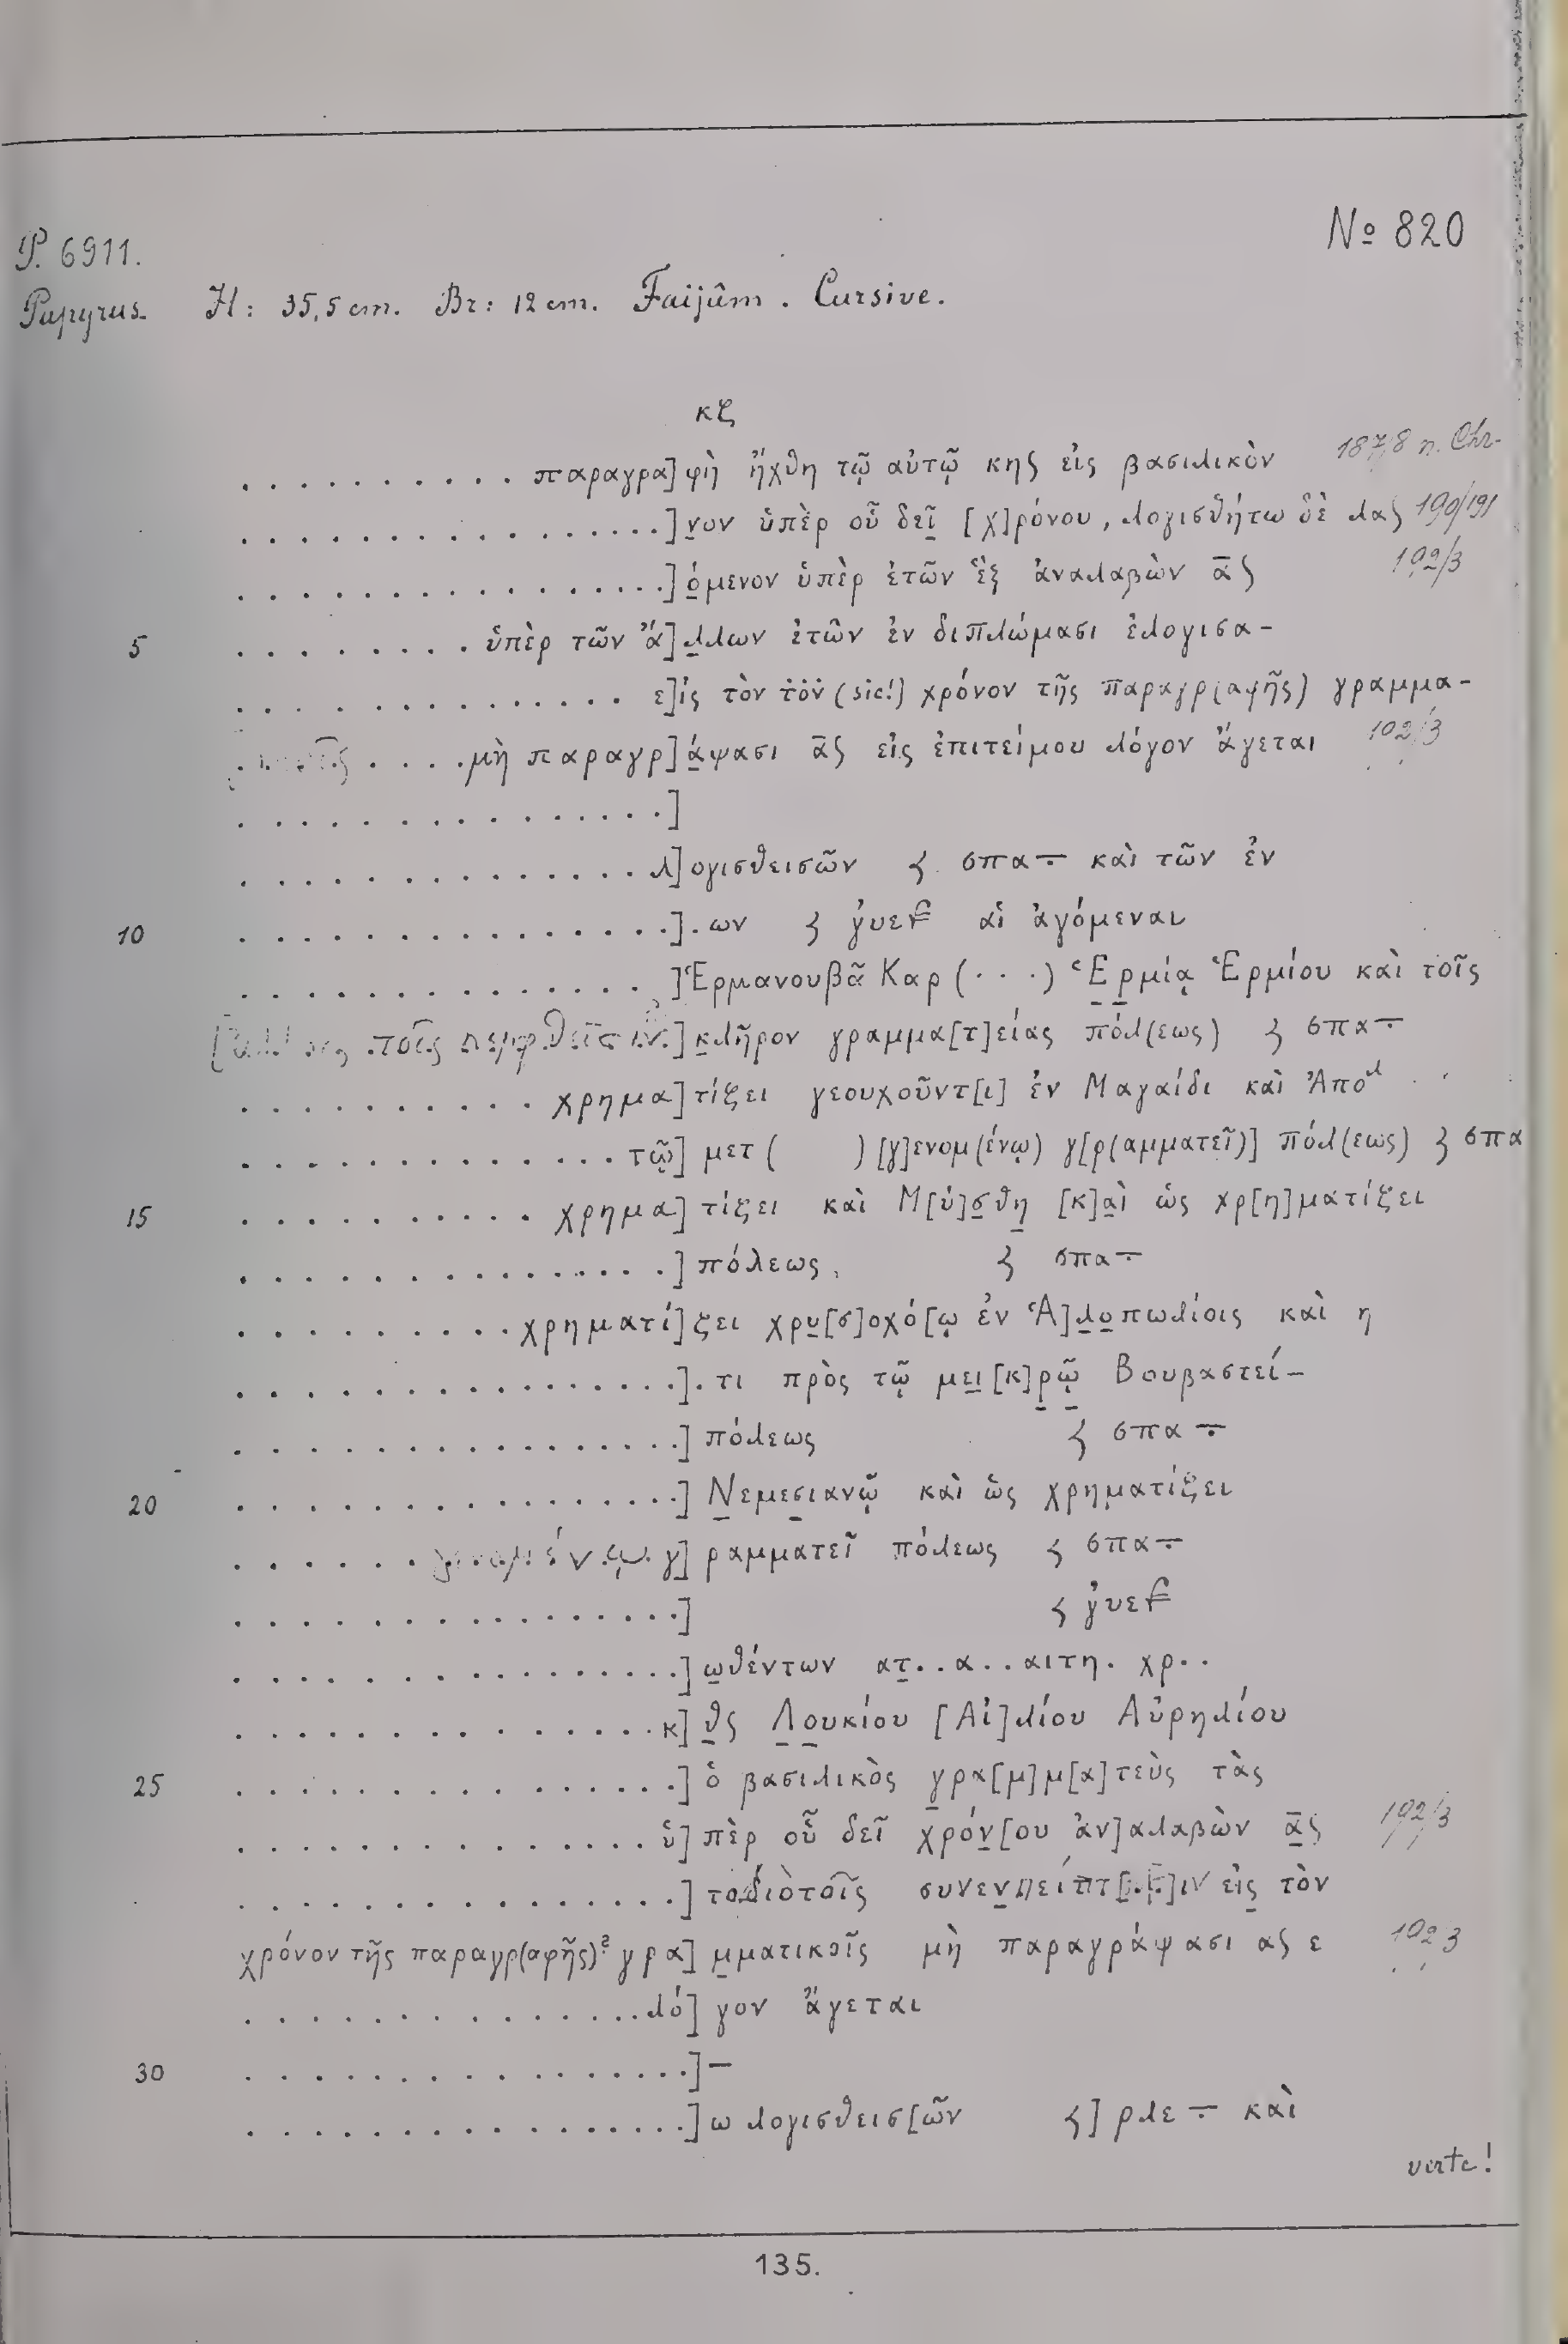 No 820
P. 6911.
Papyrus. H: 35,5 cm. Br: 12 cm. Faijûm. Cursive.
κζ
. . . . . . . . . . παραγρα]φὴ ἤχθη τῷ αὐτῷ κηϛ εἰς βασιλικὸν 187/8 n. Chr.
. . . . . . . . . . . . . . . .]ν̲ον ὑπὲρ οὗ δεῖ̲ [χ]ρόνου, λογισθήτω δὲ λαϛ 190/191
. . . . . . . . . . . . . . . .]ό̲μενον ὑπὲρ ἐτῶν ἓξ ἀναλαβὼν ᾱϛ 192/3
5 . . . . . . . . ὑπὲρ τῶν ἄ]λ̲λων ἐτῶν ἐν διπλώμασι ἐλογισα-
. . . . . . . . . . . . . . ε]ἰς τὸν τὸν (sic!) χρόνον τῆς παραγρ(αφῆς) γραμμα-
. . . . μὴ παραγρ]ά̲ψασι ᾱϛ εἰς ἐπιτείμου λόγον ἄγεται 192/3
. . . . . . . . . . . . . . . .]
. . . . . . . . . . . . . . λ]ογισθεισῶν ⟨ σπα÷ καὶ τῶν ἐν
10 . . . . . . . . . . . . . . . .].ων ⟨ ͵γυε αἱ ἀγόμεναι
. . . . . . . . . . . . . . . ]Ἑρμανουβᾷ Καρ(· · ·) Ἑ̲ρ̲μίᾳ Ἑρμίου καὶ τοῖς
τοῖς πεμφθεῖσιν]κ̲λῆρον γραμμα[τ]είας πόλ(εως) ⟨ σπα÷
. . . . . . . . . . . χρημα]τίζει γεουχοῦντ[ι] ἐν Μαγαίδι καὶ Ἀπολ
. . . . . . . . . . . . . . τῷ] μετ( ) [γ]ενομ(ένῳ) γ[ρ(αμματεῖ)] πόλ(εως) ⟨ σπα
15 . . . . . . . . . . . χρημα]τίζει καὶ Μ[ύ]σ̲θη̲ [κ]α̲ὶ ὡς χρ[η]ματίζει
. . . . . . . . . . . . . . . .] πόλεως, ⟨ σπα÷
. . . . . . . . . . χρηματί]ζει χρυ̲[σ]οχό[ῳ ἐν Ἁ]λ̲ο̲πωλίοις καὶ η
. . . . . . . . . . . . . . . .].τι πρὸς τῷ με̲ι̲[κ]ρ̲ῷ̲ Βουβαστεί-
. . . . . . . . . . . . . . . .] πόλεως ⟨ σπα÷
20 . . . . . . . . . . . . . . . .] Ν̲εμεσ̲ιανῷ καὶ ὡς χρηματίζει
. . . . . . γενομένῳ γ]ραμματεῖ πόλεως ⟨ σπα÷
. . . . . . . . . . . . . . . .] ⟨ ͵γυε
. . . . . . . . . . . . . . . .]ω̲θέντων ατ̲..α..αιτη. χρ..
. . . . . . . . . . . . . . . κ]θ̲ϛ Λ̲ο̲υκίου [Αἰ]λίου Αὐρηλίου
25 . . . . . . . . . . . . . . . .] ὁ βασιλικὸς γ̲ρα[μ]μ[α]τεὺς τὰς
. . . . . . . . . . . . . . . ὑ]πὲρ οὗ δεῖ χρόν̲[ου ἀν]αλαβὼν α̲̅ϛ 192/3
. . . . . . . . . . . . . . . .] εἰς̲ τὸν
χρόνον τῆς παραγρ(αφῆς)? γρα]μ̲ματικοῖς μὴ παραγράψασι αϛ ε 192/3
. . . . . . . . . . . . . . . λό]γον ἄγεται
30 . . . . . . . . . . . . . . . .]–
. . . . . . . . . . . . . . . .]ω λογισθεισ[ῶν ⟨] ρλε÷ καὶ
verte!
135.